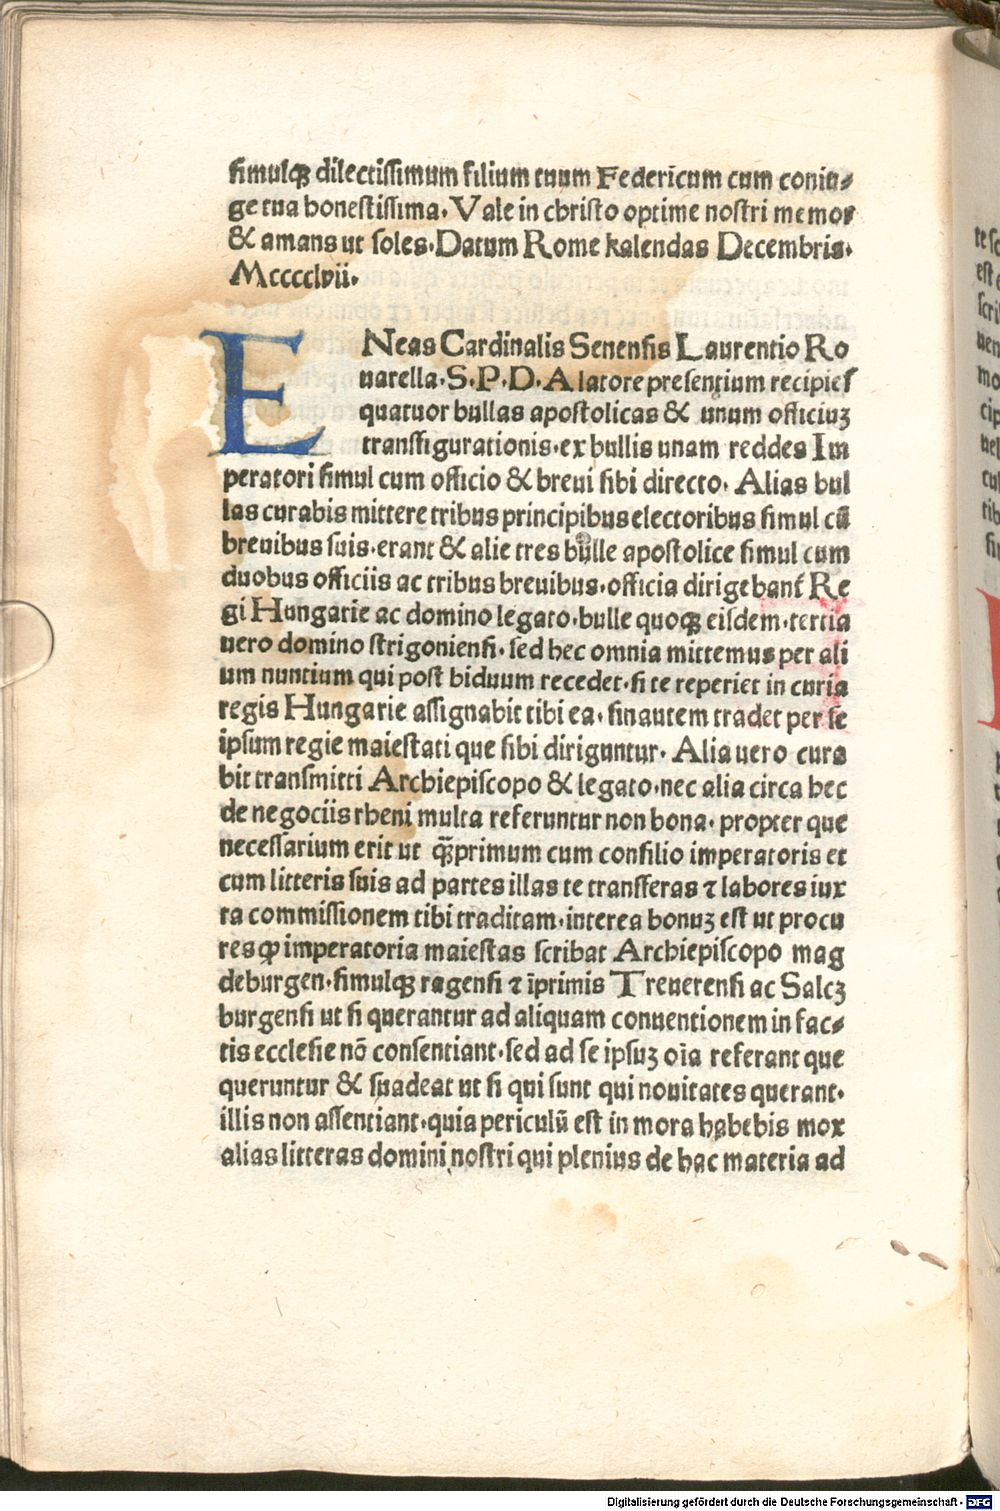 simulqꝫ dilectissimum filium tuum Federicum cum coniu-
ge tua honestissima. Vale in christo optime nostri memor
& amans ut soles. Datum Rome kalendas Decembris.
Mcccclvii.
ENeas Cardinalis Senensis Laurentio Ro
uarella. S. P. D. A latore presentium recipies
quatuor bullas apostolicas & unum officiuꝫ
transfigurationis. ex bullis unam reddes Im
peratori simul cum officio & breui sibi directo. Alias bul
las curabis mittere tribus principibus electoribus simul cū
breuibus suis. erant & alie tres bulle apostolice simul cum
duobus officiis ac tribus breuibus. officia dirigebant̄ Re
gi Hungarie ac domino legato. bulle quoqꝫ eisdem. tertia
uero domino strigoniensi. sed hec omnia mittemus per ali
um nuntium qui post biduum recedet. si te reperiet in curia
regis Hungarie assignabit tibi ea. sin autem tradet per se
ipsum regie maiestati que sibi diriguntur. Alia uero cura
bit transmitti Archiepiscopo & legato. nec alia circa hec
de negociis rheni multa referuntur non bona. propter que
necessarium erit ut qꝫ̄primum cum consilio imperatoris et
cum litteris suis ad partes illas te transferas ⁊ labores iux
ta commissionem tibi traditam. interea bonuꝫ est ut procu
res ꝙ imperatoria maiestas scribat Archiepiscopo mag
deburgen. simulqꝫ ragensi ⁊ īprimis Treuerensi ac Salcꝫ
burgensi ut si querantur ad aliquam conuentionem in fac-
tis ecclesie nō consentiant. sed ad se ipsuꝫ oīa referant que
queruntur & suadeat ut si qui sunt qui nouitates querant.
illis non assentiant. quia periculū est in mora habebis mox
alias litteras domini nostri qui plenius de hac materia ad
te sc
est e
scri
uen
mo
cip
uel
cul
tib
Digitalisierung gefördert durch die Deutsche Forschungsgemeinschaft - DFG